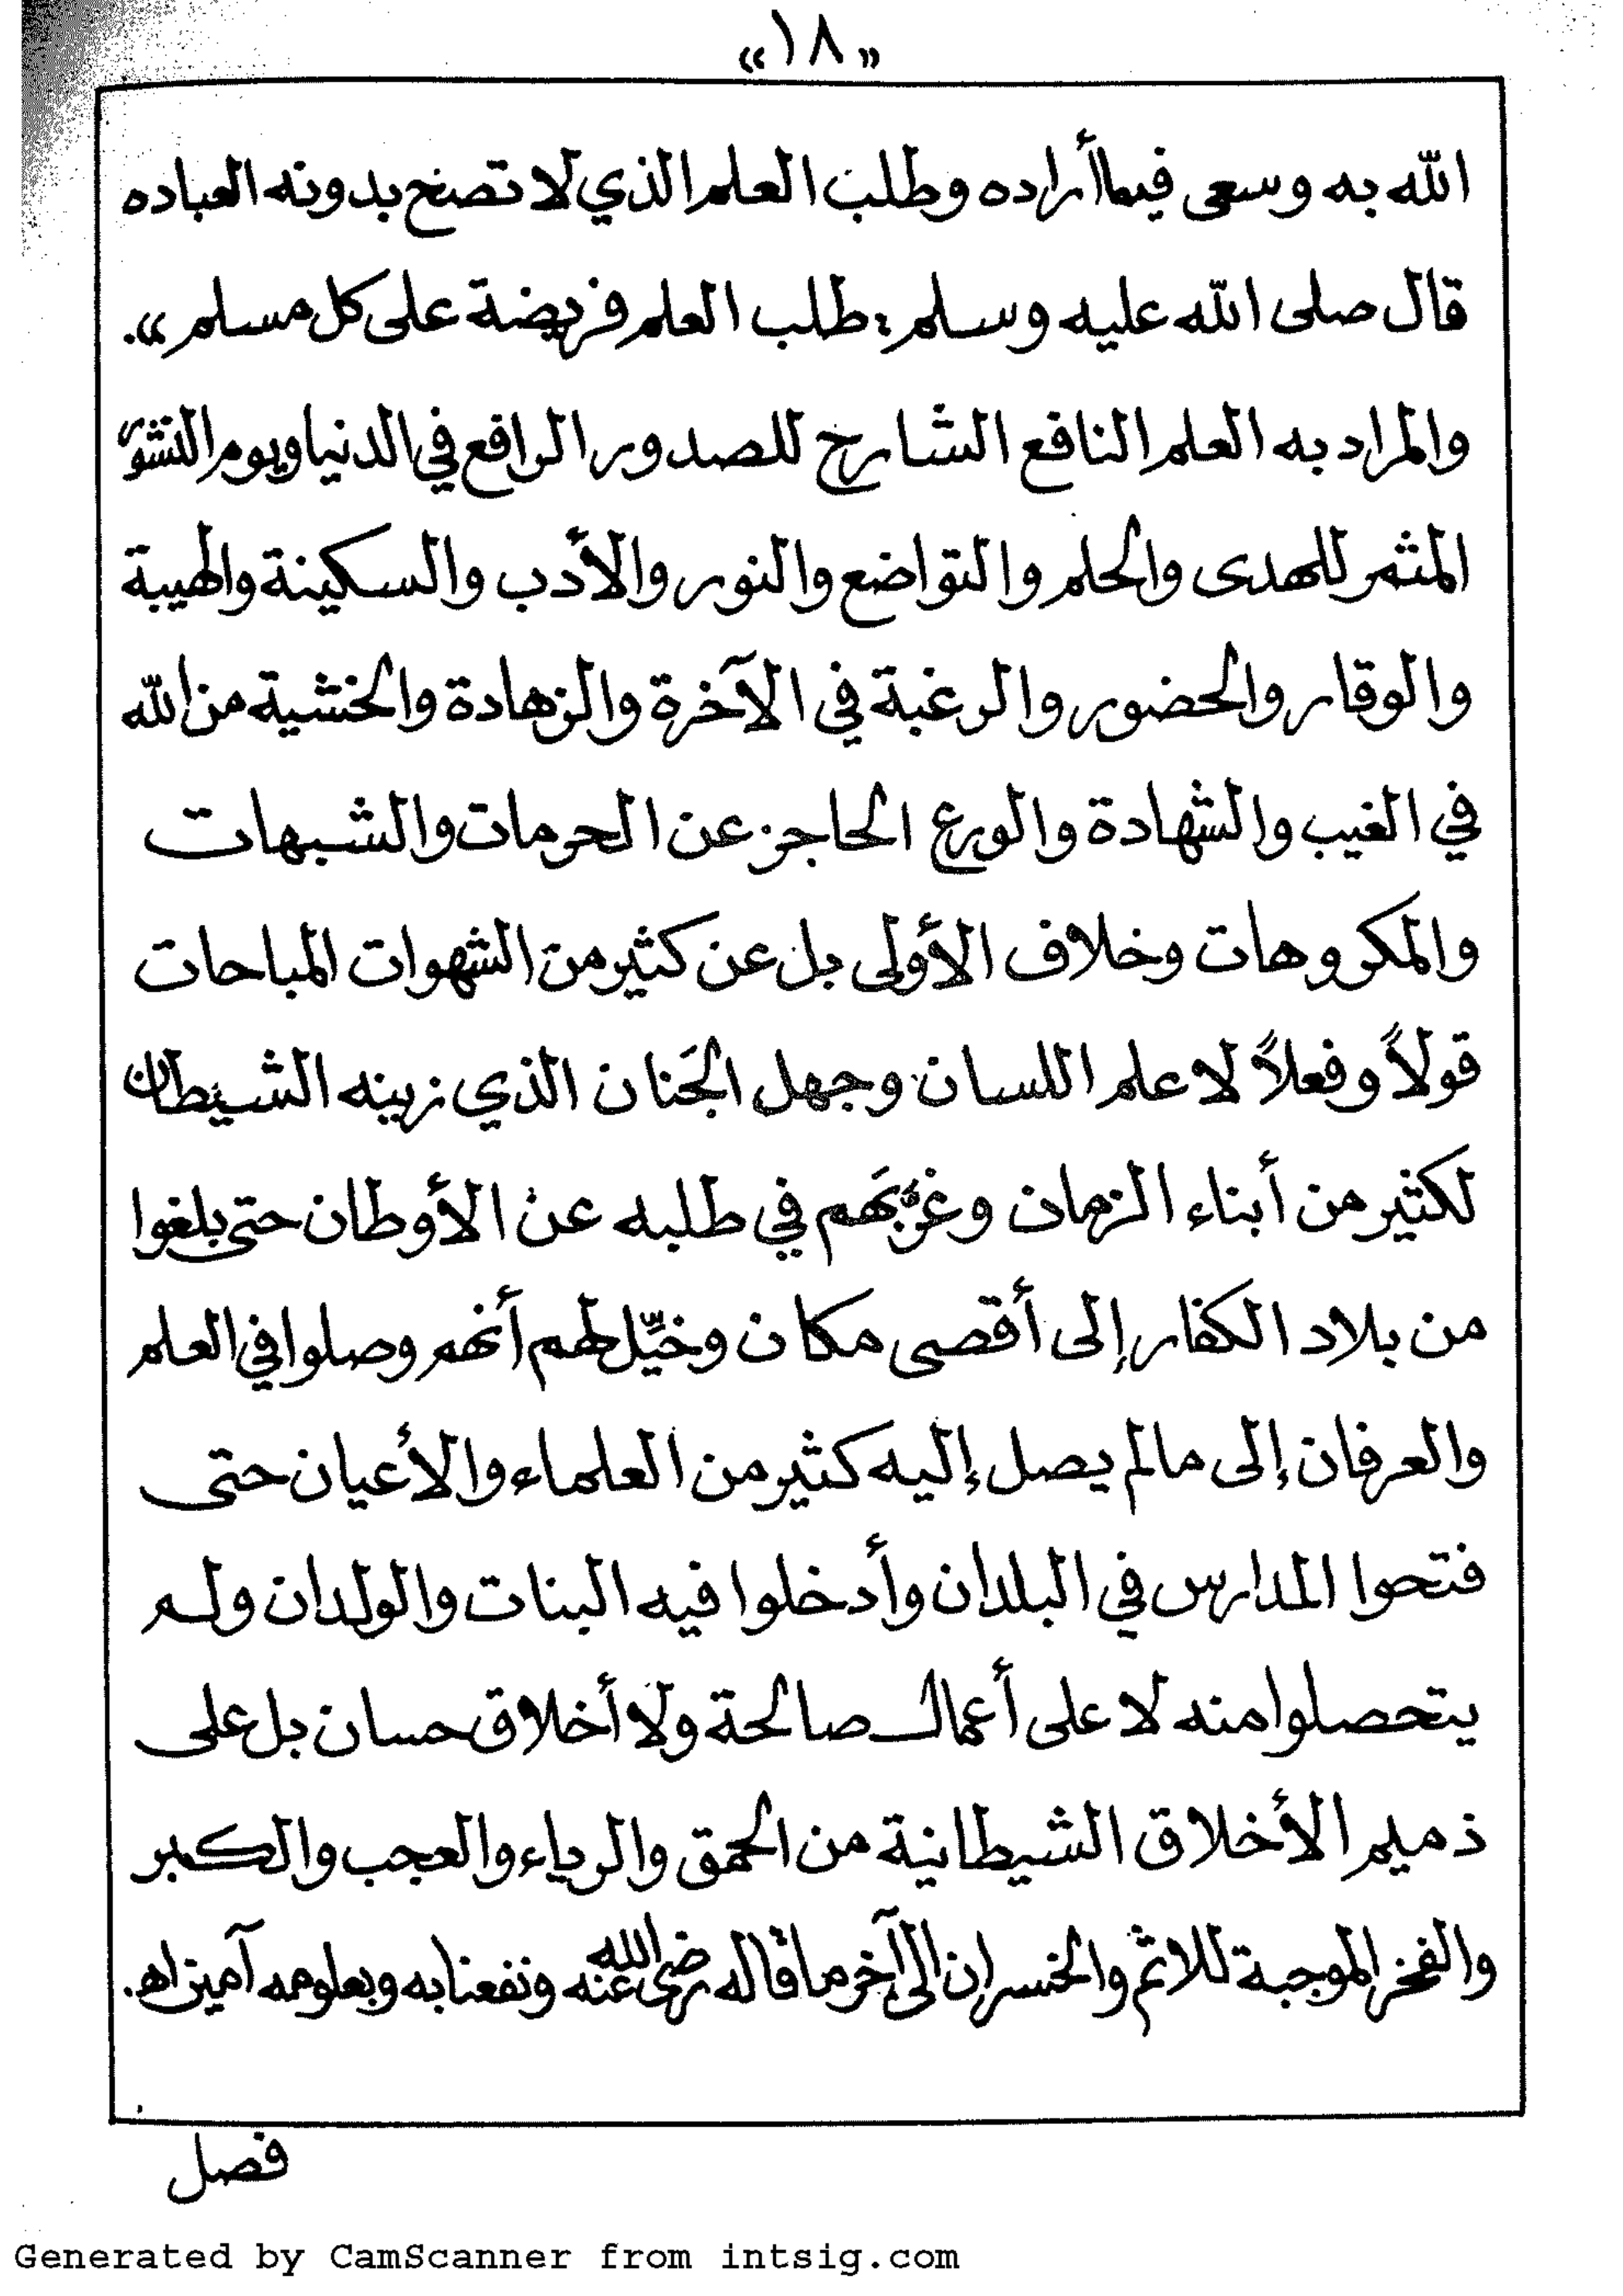 «١٨»
الله به وسعى فيما أراده وطلب العلم الذي لا تصح بدونه العباده
قال صلى الله عليه وسلم: طلب العلم فريضة على كل مسلم».
والمراد به العلم النافع الشارح للصدور الرافع في الدنيا ويوم النشور
المثمر للهدى والحلم والتواضع والنور والأدب والسكينة والهيبة
والوقار والحضور والرغبة في الآخرة والزهادة والخشية من الله
في الغيب والشهادة والورع الحاجز عن المحرمات والشبهات
والمكروهات وخلاف الأولى بل عن كثير من الشهوات المباحات
قولاً وفعلاً لا علم اللسان وجهل الجَنان الذي زينه الشيطان
لكثير من أبناء الزمان وغرَّبَهم في طلبه عن الأوطان حتى بلغوا
من بلاد الكفار إلى أقصى مكان وخيِّل لهم أنهم وصلوا في العلم
والعرفان إلى مالم يصل إليه كثير من العلماء والأعيان حتى
فتحوا المدارس في البلدان وأدخلوا فيه البنات والولدان ولم
يتحصلوا منه لا على أعمال صالحة ولا أخلاق حسان بل على
ذميم الأخلاق الشيطانية من الحمق والرياء والعجب والكبر
والفخر الموجبة للاثم والخسران إلى آخر ما قاله رضي الله عنه ونفعنا به وبعلومه آمين اهـ.
فصل
Generated by CamScanner from intsig.com